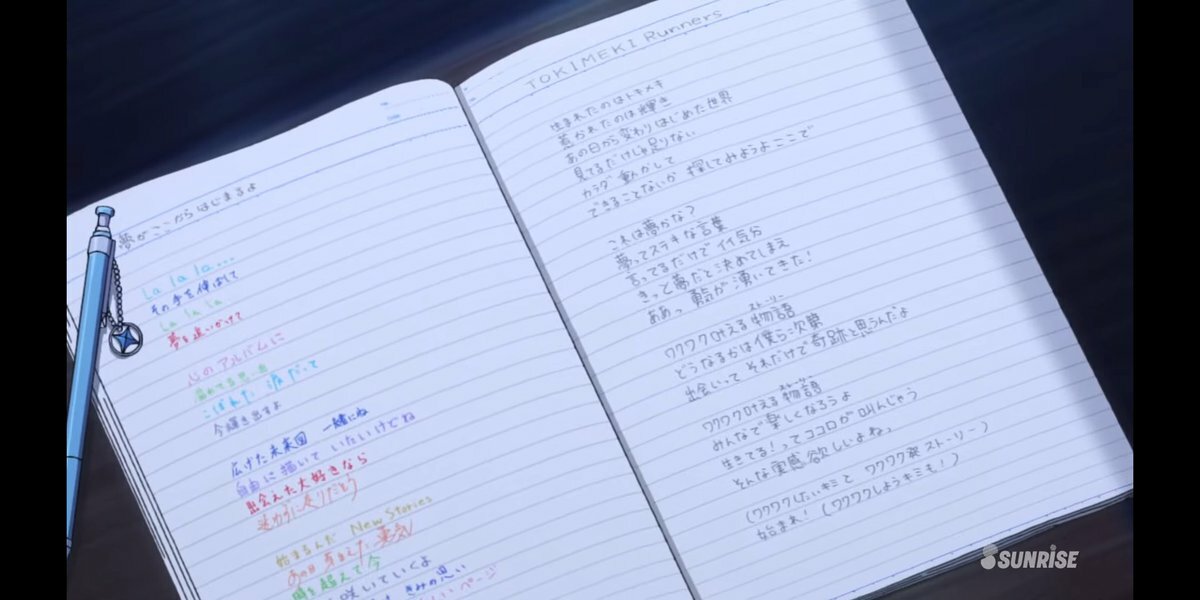 夢がここからはじまるよ
La la la...
その手を伸ばして
La la la
夢を追いかけて
心のアルバムに
溢れてる思い出
こぼれた涙だって
今輝き出すよ
広げた未来図 一緒にね
自由に描いて いたいけどね
出会えた大好きなら
走りだそう
始まるんだ New Stories
あの日 芽生えた 勇気
時を超えて今
咲いていくよ
きみの思い
ページ
TOKIMEKI Runners
生まれたのはトキメキ
惹かれたのは輝き
あの日から変わりはじめた世界
見てるだけじゃ足りない
カラダ動かして
できることないか 探してみようよここで
これは夢かな?
夢ってステキな言葉
言ってるだけで イイ気分
きっと夢だと決めてしまえ
ああっ 勇気が 湧いてきた!
ストーリー
ワクワク叶える物語
どうなるかは僕ら次第
出会いって それだけで奇跡と思うんだよ
ストーリー
ワクワク叶える物語
みんなで楽しくなろうよ
生きてる!ってココロが叫んじゃう
そんな実感欲しいよねっ
(ワクワクしたいキミと ワクワク発ストーリー)
始まれ! (ワクワクしようキミも!)
SUNRISE